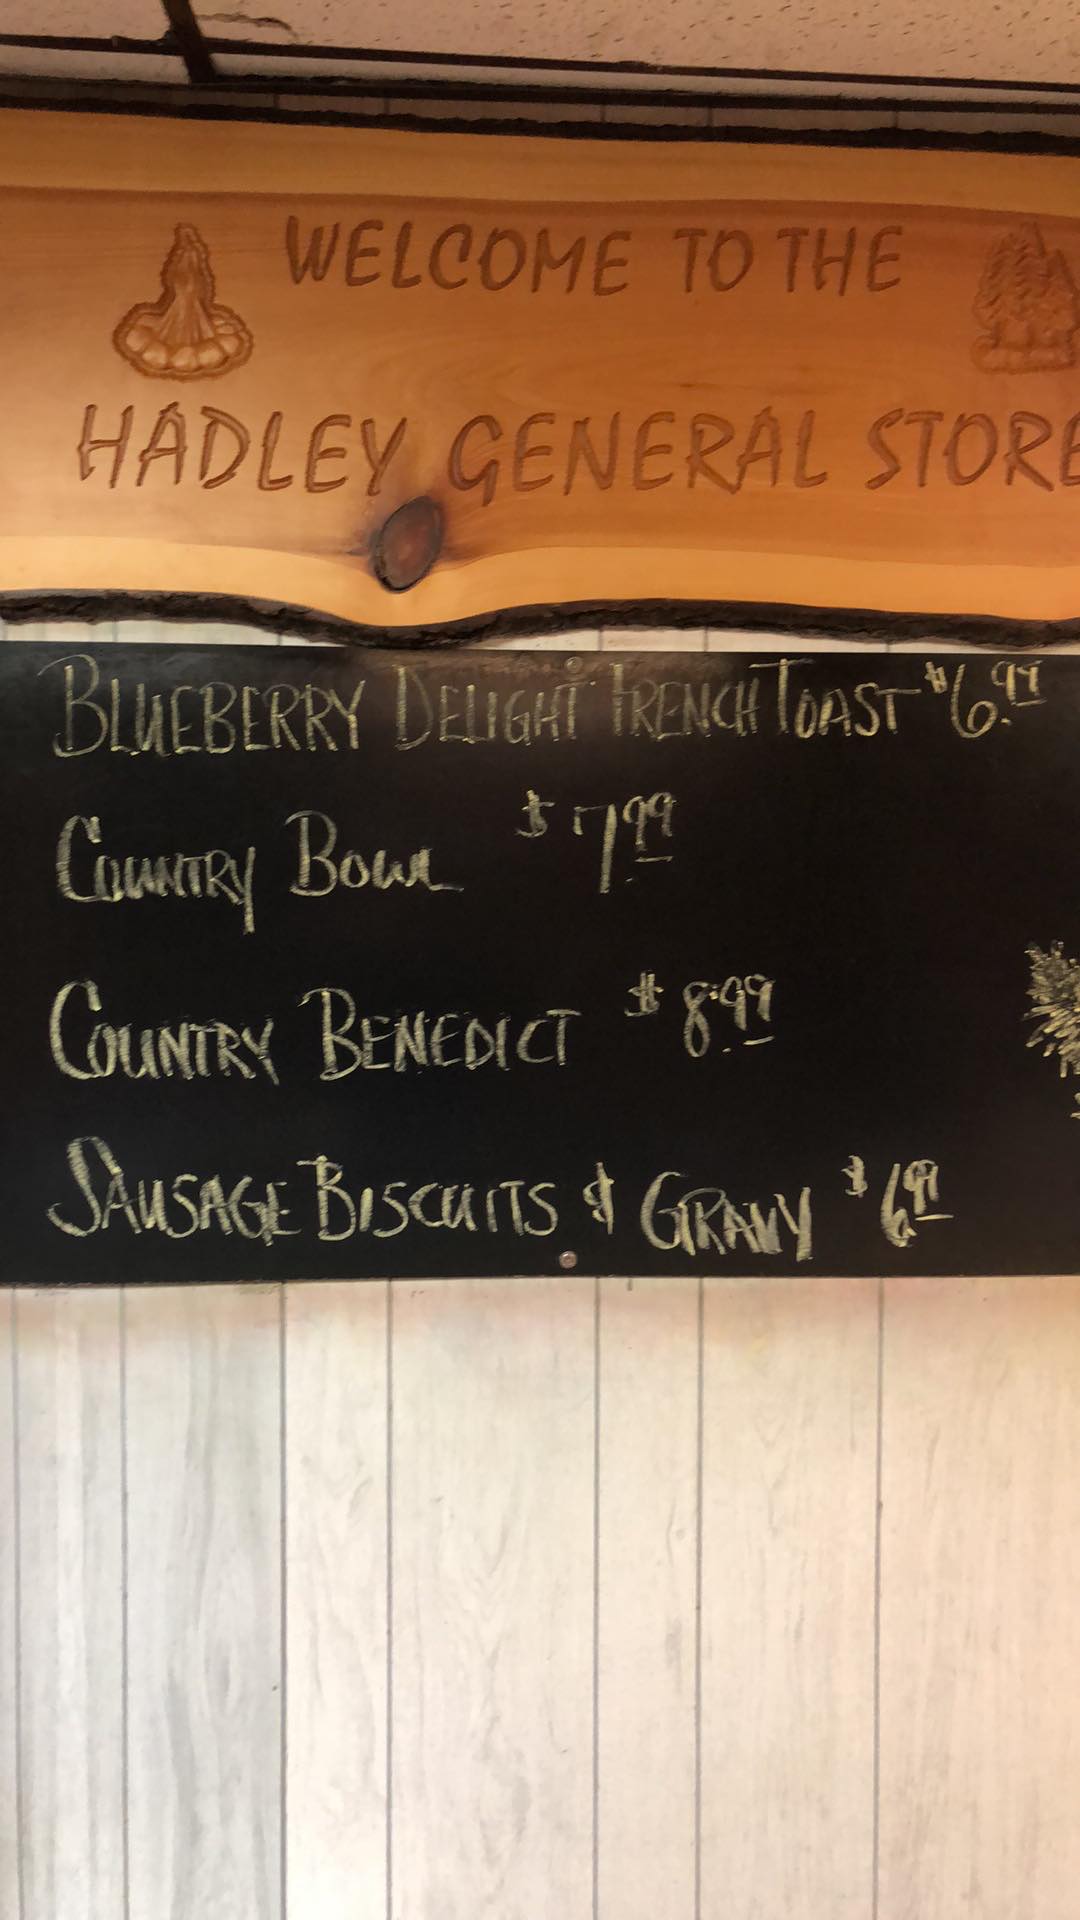 WELCOME TO THE
HADLEY GENERAL STORE
BLUEBERRY DELIGHT FRENCH TOAST $6.99
COUNTRY BOWL $7.99
COUNTRY BENEDICT $8.99
SAUSAGE BISCUITS & GRAVY $6.99